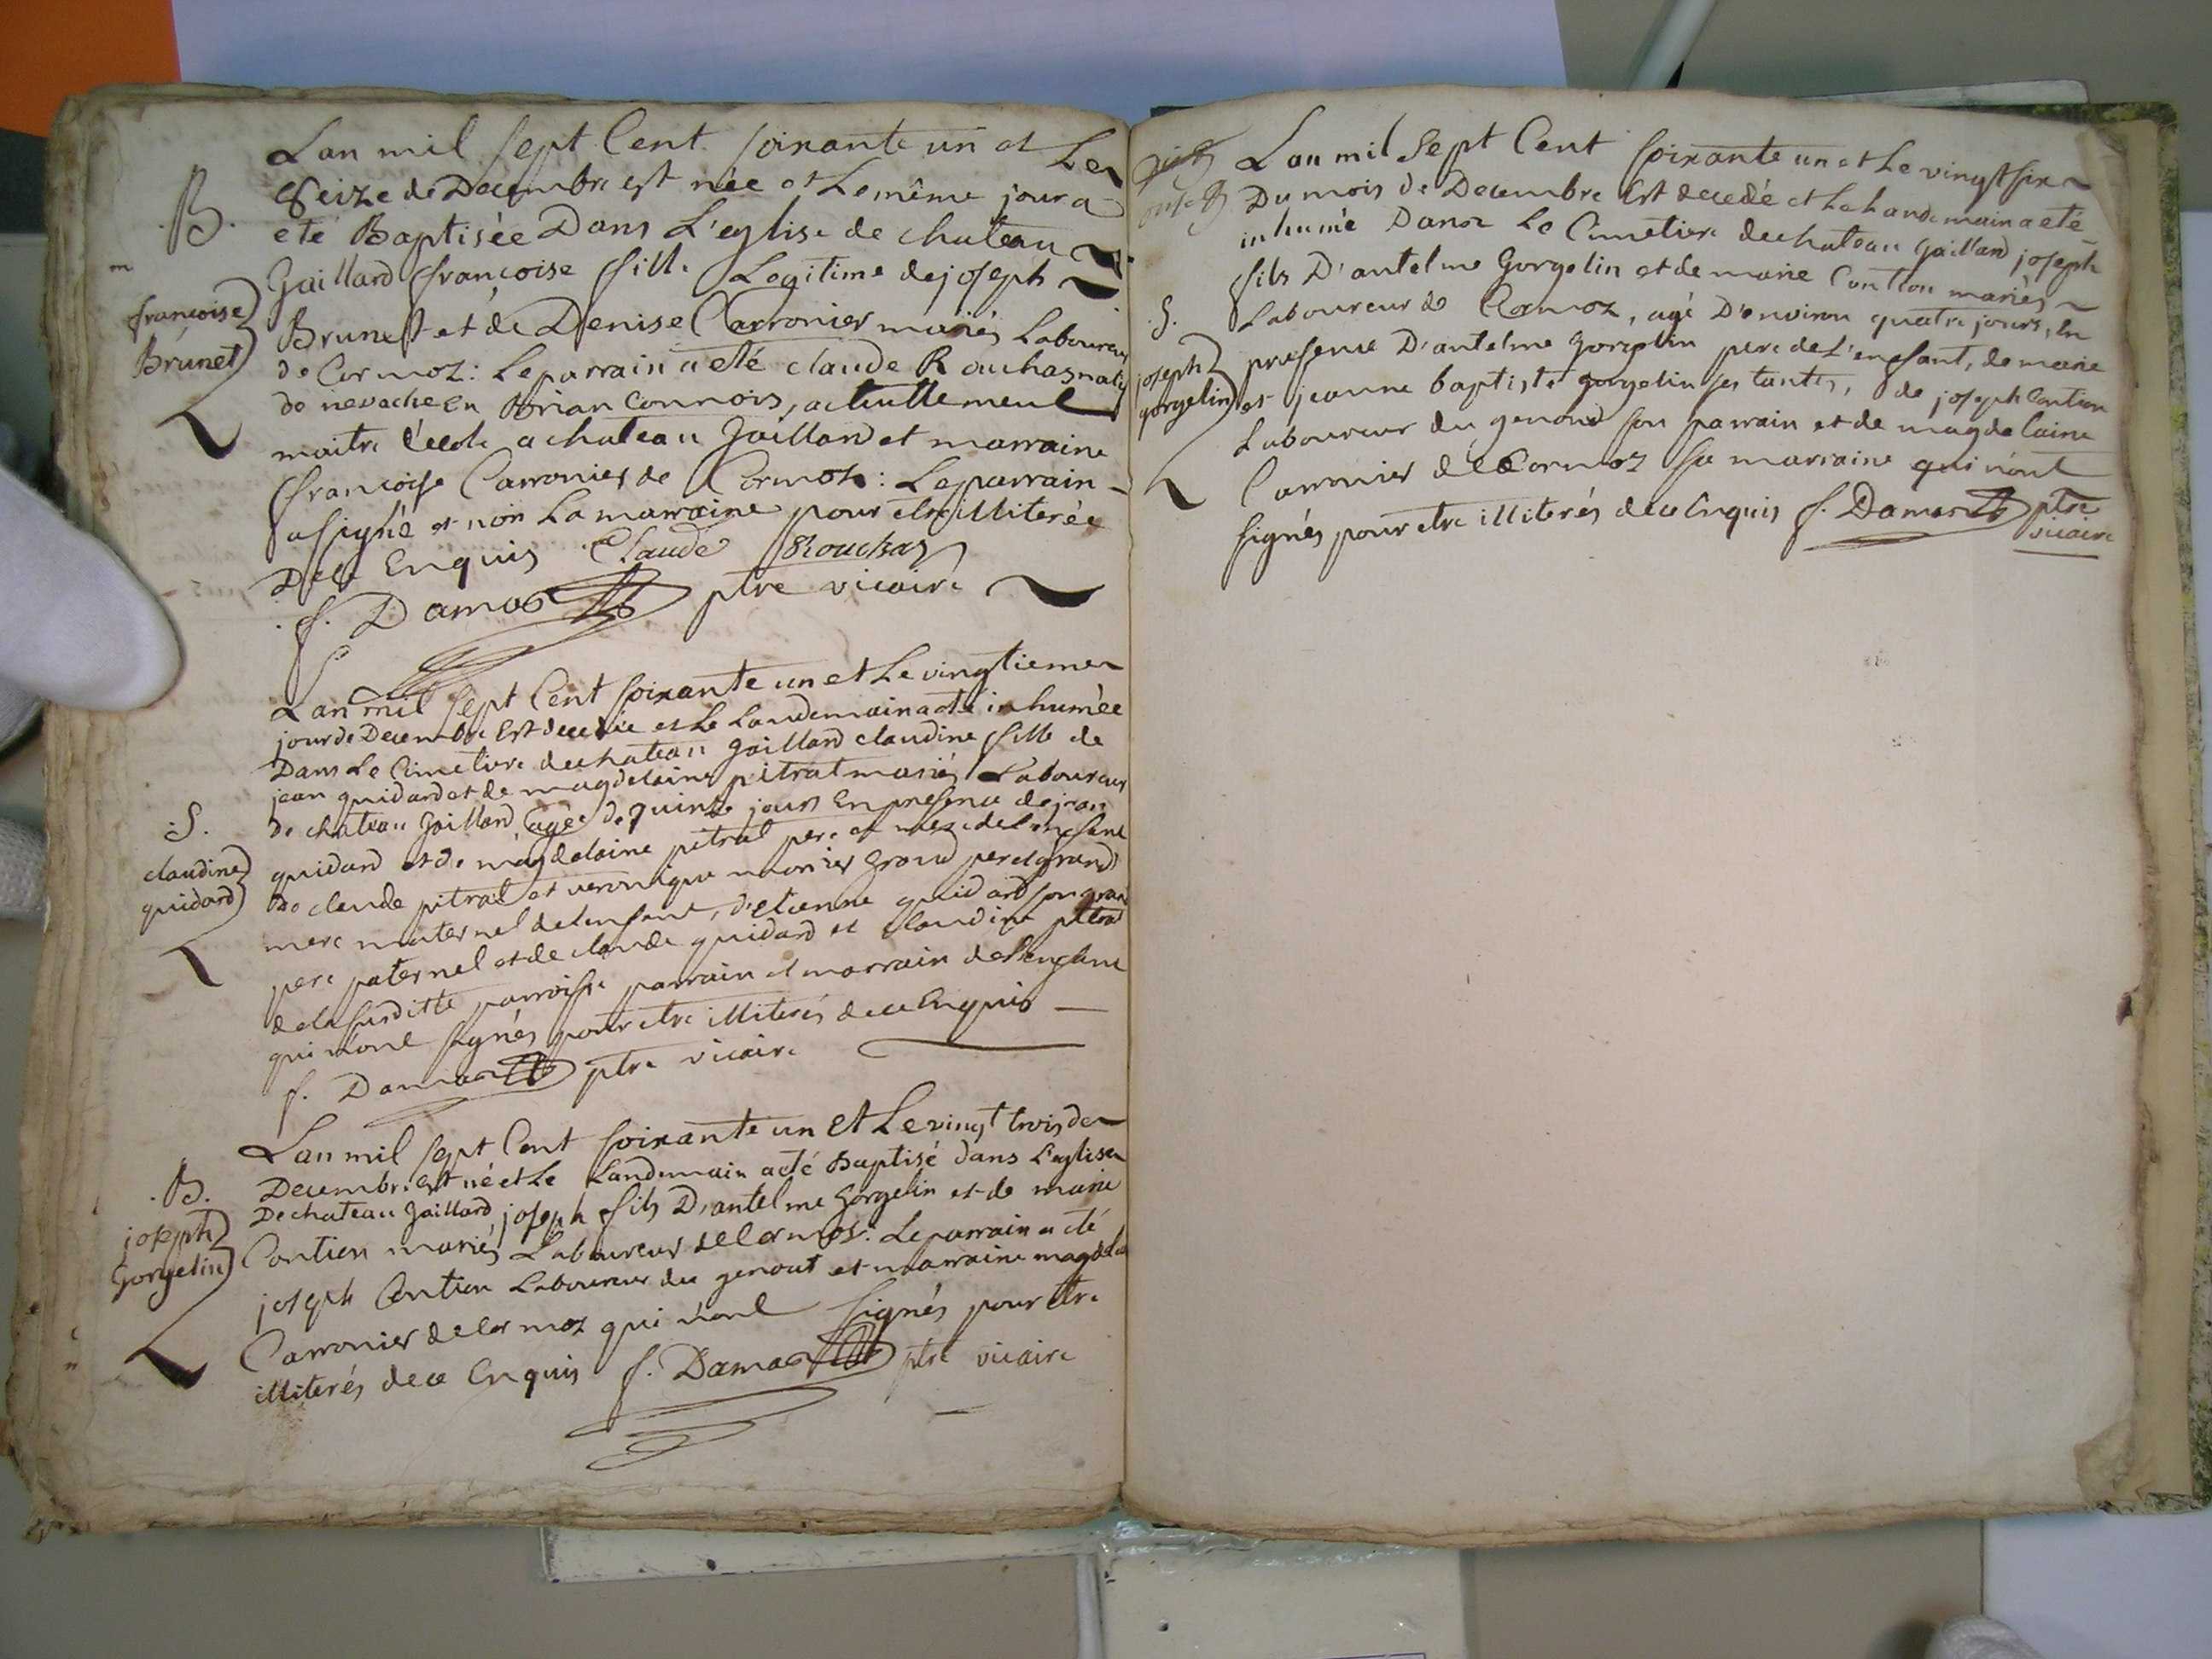 Lan mil sept Cent soixante un et Le
Seize de Decembre est née et Le même jour a
.B.
eté Baptisée Dans L'eglise de chateau
Gaillard françoise fille Legitime de joseph
françoise
Brunet
Brunet et de Denise Carronier mariés Laboureur
de Cormoz : Le parrain a eté claude Rouchas natif
de nevache en Brian Connois, actuellement
maitre d'ecole a chateau Gaillard et marraine
françoise Carronier de Cormoz : Le parrain
a signé et non La marraine pour etre illiterée
De ce Enquis Claude Rouchas
f. Damas ptre vicaire
Lan mil sept Cent soixante un et Le vingtieme
jour de Decembre Est decedée et Le Landemain a eté inhumée
Dans Le Cimetiere de chateau Gaillard claudine fille de
jean guidard et de magdelaine pitrat mariés Laboureur
.S.
de chateau Gaillard agée de quinze jours En presence de jean
claudine
guidard
guidard et de magdelaine pitrat pere et mere de l'enfant
de claude pitrat et veronique monier grand pere et grand
mere maternel de lenfant, d'etienne guidard son grand
pere paternel et de claude guidard et claudine pitrat
de la susditte parroisse parrain et marrain de l'enfant
qui n'ont signés pour etre illiterés de ce Enquis
f. Damas ptre vicaire
Lan mil sept Cent soixante un Et Le vingt trois de
.B.
Decembre est né et Le Landemain a eté Baptisé dans L'eglise
De chateau Gaillard joseph fils D'antelme Gorgelin et de marie
joseph
Gorgelin
Contion mariés Laboureur de Cormoz : Le parrain a eté
joseph Contion Laboureur du genoud et marraine magdelaine
Carronier de Cormoz qui n'ont signés pour etre
illiterés de ce Enquis f. Damas ptre vicaire
Lan mil Sept Cent soixante un et Le vingt six
Du mois de Decembre Est decedé et Le Landemain a eté
inhumé Dans Le Cimetiere de chateau Gaillard joseph
fils D'antelme Gorgelin et de marie Contion mariés
.S.
Laboureur de Cormoz, agé D'environ quatre jours, En
joseph
gorgelin
presence D'antelme Gorgelin pere de L'enfant, de marie
et jeanne baptiste gorgelin ses tantes, de joseph Contion
Laboureur du genoud son parrain et de magdelaine
Carronier de Cormoz sa marraine qui n'ont
signés pour etre illiterés de ce Enquis f. Damas ptre
vicaire